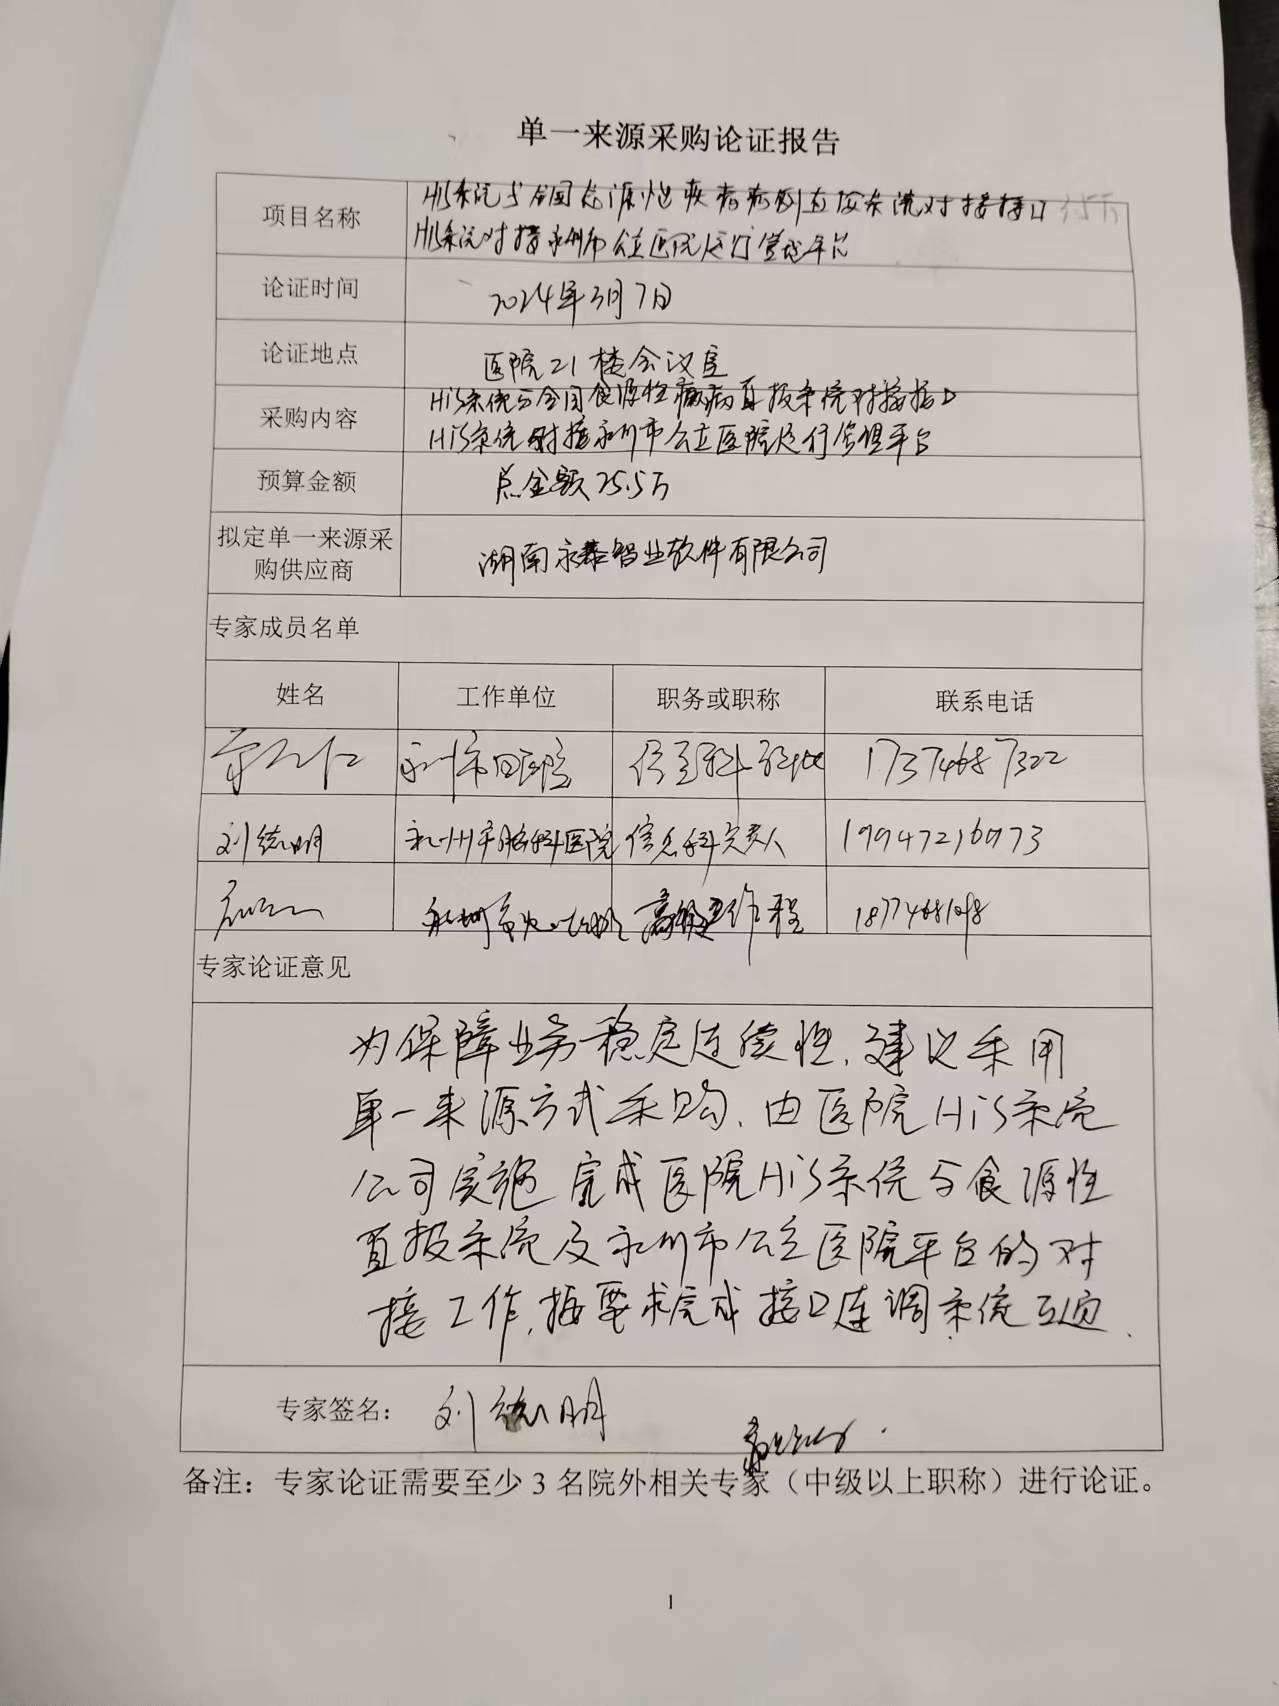 单一来源采购论证报告
项目名称
HIS系统与全国食源性疾病病例直报系统对接接口
HIS系统对接永州市公立医院运行管理平台
论证时间 2024年3月7日
论证地点 医院21楼会议室
采购内容
HiS系统与全国食源性疾病直报系统对接接口
HiS系统对接永州市公立医院运行管理平台
预算金额 总金额25.5万
拟定单一来源采
购供应商
湖南永泰智业软件有限公司
专家成员名单
姓名 工作单位 职务或职称 联系电话
永州市 医院 信息科 17374687322
刘德明 永州市脑科医院 信息科负责人 19947216973
永州市 高级工作程
专家论证意见
为保障业务稳定连续性,建议采用
单一来源方式采购,由医院HiS系统
公司实施完成医院HiS系统与食源性
直报系统及永州市公立医院平台的对
接工作,按要求完成接口连调系统互通.
专家签名: 刘德明
备注:专家论证需要至少3名院外相关专家(中级以上职称)进行论证。
1